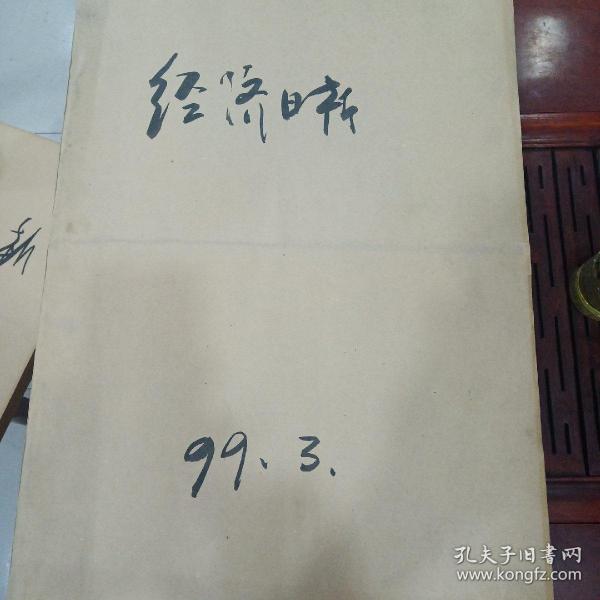 经济日报
99.3.
孔夫子旧书网
www.kongfz.com